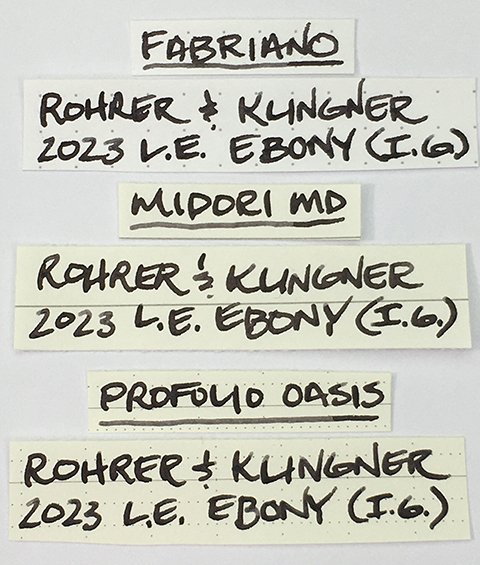 FABRIANO
ROHRER & KLINGNER
2023 L.E. EBONY (I.G)
MIDORI MD
ROHRER & KLINGNER
2023 L.E. EBONY (I.G.)
PROFOLIO OASIS
ROHRER & KLINGNER
2023 L.E. EBONY (I.G.)